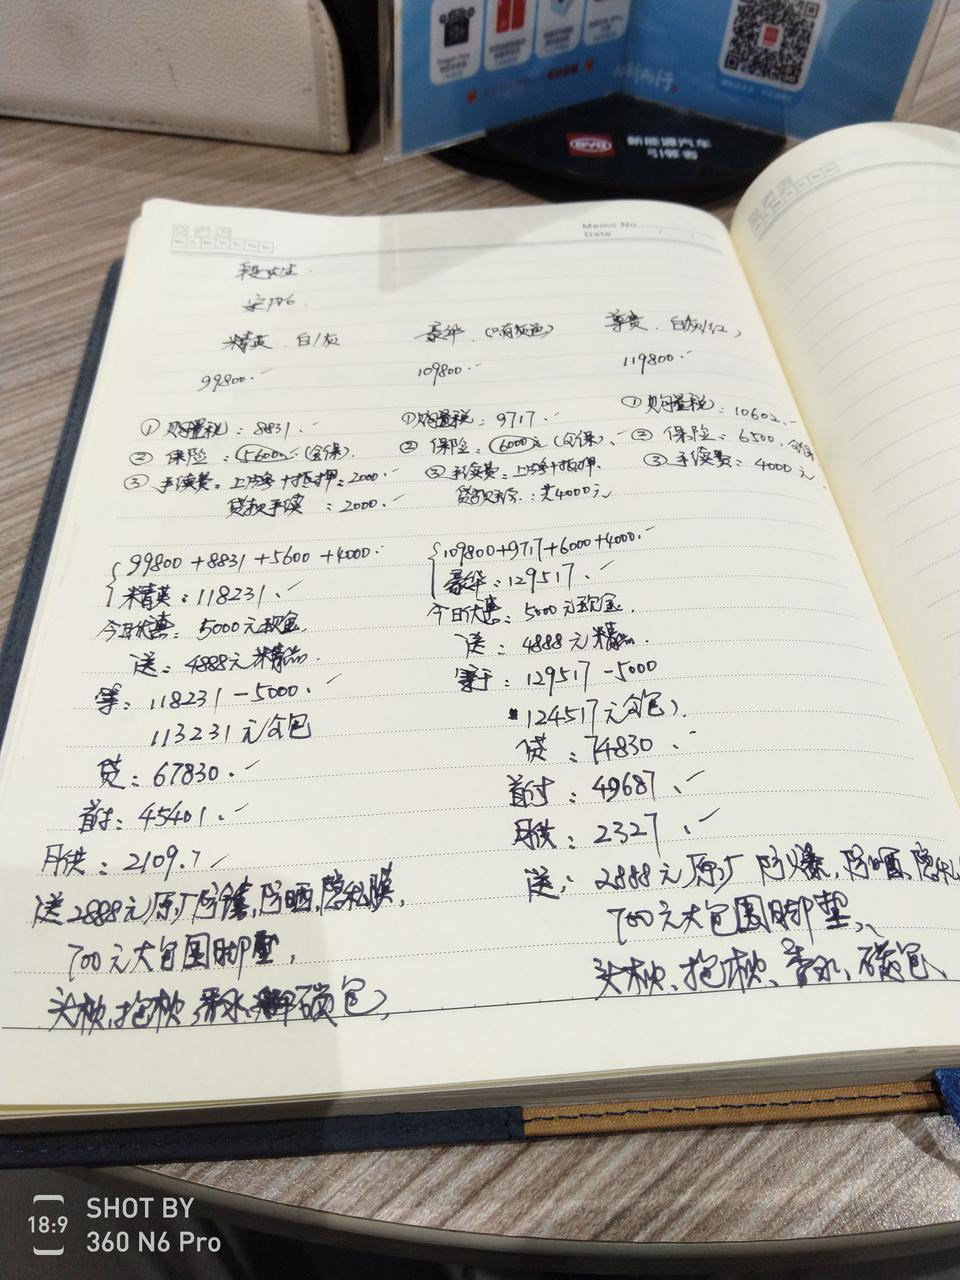 BYD
新能源汽车
引领者
Memo No.
Date / /
精英 白/灰 豪华 (只有灰色) 尊贵 白/灰/红)
99800. 109800. 119800.
①购置税：8831. ①购置税：9717. ①购置税：10602.
②保险：5600 (全保). ②保险：6000元(全保)、 ②保险：6500.全保
③手续费：上牌+抵押：2000. ③手续费：上牌+抵押. ③手续费：4000元
贷款手续：2000. 共4000元
99800+8831+5600+4000. 109800+9717+6000+4000.
精英：118231. 豪华：129517.
今日优惠：5000元现金. 今日优惠：5000元现金.
送：4888元精品. 送：4888元精品.
等：118231-5000. 等于：129517-5000
113231元全包 124517元全包).
贷：67830. 贷：74830.
首付：45401. 首付：49687.
月供：2109.7 月供：2327.
送2888元原厂防爆,防晒,隐私膜, 送：2888元原厂防爆,防晒,隐私
700元大包围脚垫, 700元大包围脚垫、
头枕,抱枕,香水,碳包) 头枕、抱枕、香水、碳包、
18:9
SHOT BY
360 N6 Pro